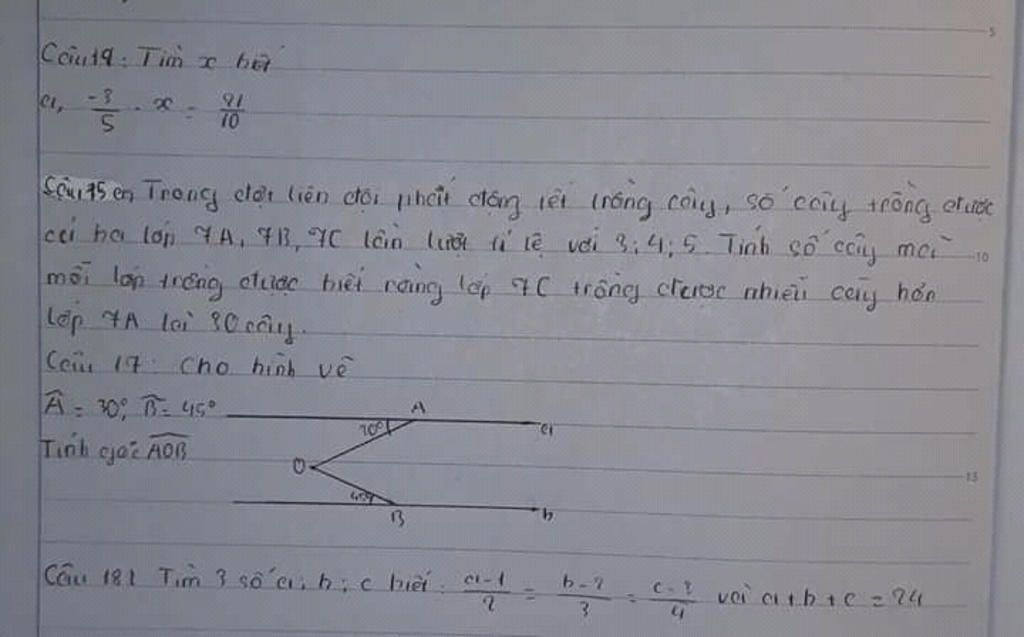 Câu 14: Tìm x biết
a, -3/5 . x = 21/10
Câu 15 a, Trong đợt liên đội phát động tết trồng cây, số cây trồng được
của ba lớp 7A, 7B, 7C lần lượt tỉ lệ với 3; 4; 5. Tính số cây mà
mỗi lớp trồng được biết rằng lớp 7C trồng được nhiều cây hơn
lớp 7A là 30 cây.
Câu 17: Cho hình vẽ
Â = 30°, B̂ = 45°
Tính góc AOB
A
30°
a
O
45°
B
b
Câu 18: Tìm 3 số a; b; c biết: a-1/2 = b-2/3 = c-3/4 với a+b+c = 24
5
10
15